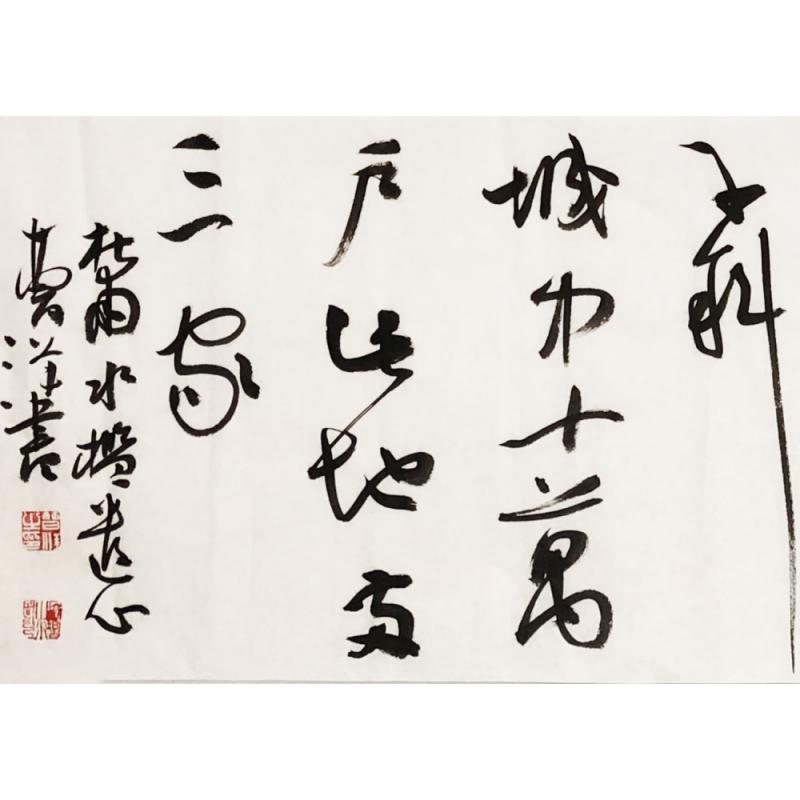 子斜
城中十萬
戶此地兩
三家
杜甫水檻遣心
曹洋書